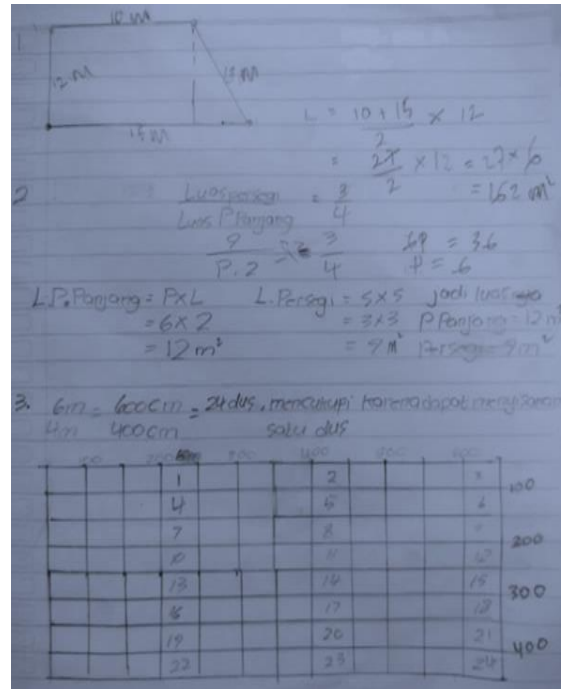 1.
10 m
12 m
15 m
L = 10 + 15 / 2 × 12
= 27 / 2 × 12 = 27 × 6
= 162 m²
2
Luas persegi / Luas P Panjang = 3 / 4
9 / P. 2 = 3 / 4
= 36
P = 6
L.P. Panjang = P × L
= 6 × 2
= 12 m²
L. Persegi = s × s
= 3 × 3
= 9 m²
jadi luasnya
P Panjang = 12 m²
Persegi = 9 m²
3. 6m = 600 cm = 24 dus, mencukupi karena dapat
4m 400 cm satu dus
200 400
1 2 100
4 5 6
7 8 200
10 11 12
13 14 15 300
16 17 18
19 20 21 400
22 23 24